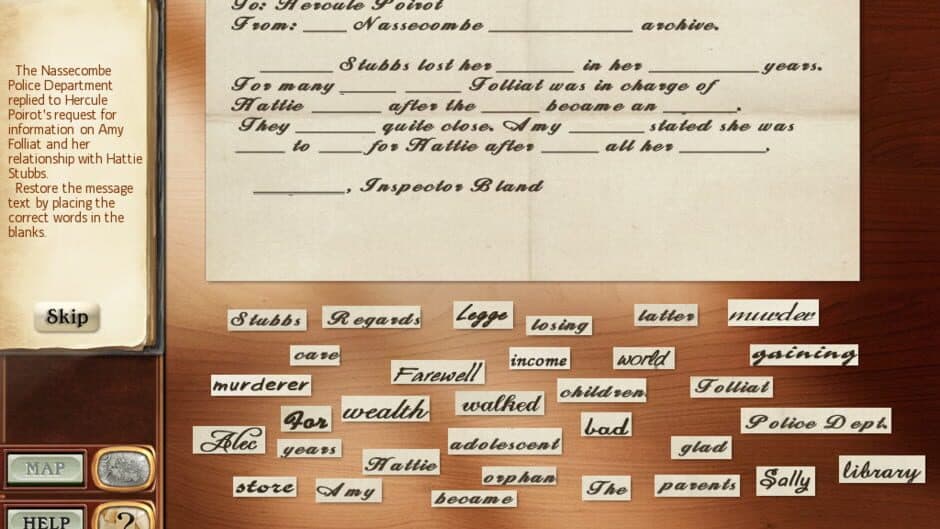 To: Hercule Poirot
From: ____ Nassecombe ____________ archive.
______ Stubbs lost her ______ in her _________ years.
For many _____ _____ Folliat was in charge of
Hattie ______ after the _____ became an ______.
They _______ quite close. Amy ______ stated she was
____ to ____ for Hattie after _____ all her _______.
________, Inspector Bland
The Nassecombe
Police Department
replied to Hercule
Poirot's request for
information on Amy
Folliat and her
relationship with Hattie
Stubbs.
Restore the message
text by placing the
correct words in the
blanks.
Skip
MAP
HELP
?
Stubbs Regards Legge losing latter murder
care income world gaining
murderer Farewell children Folliat
For wealth walked bad Police Dept.
Alec years adolescent glad
Hattie orphan
store Amy became The parents Sally library